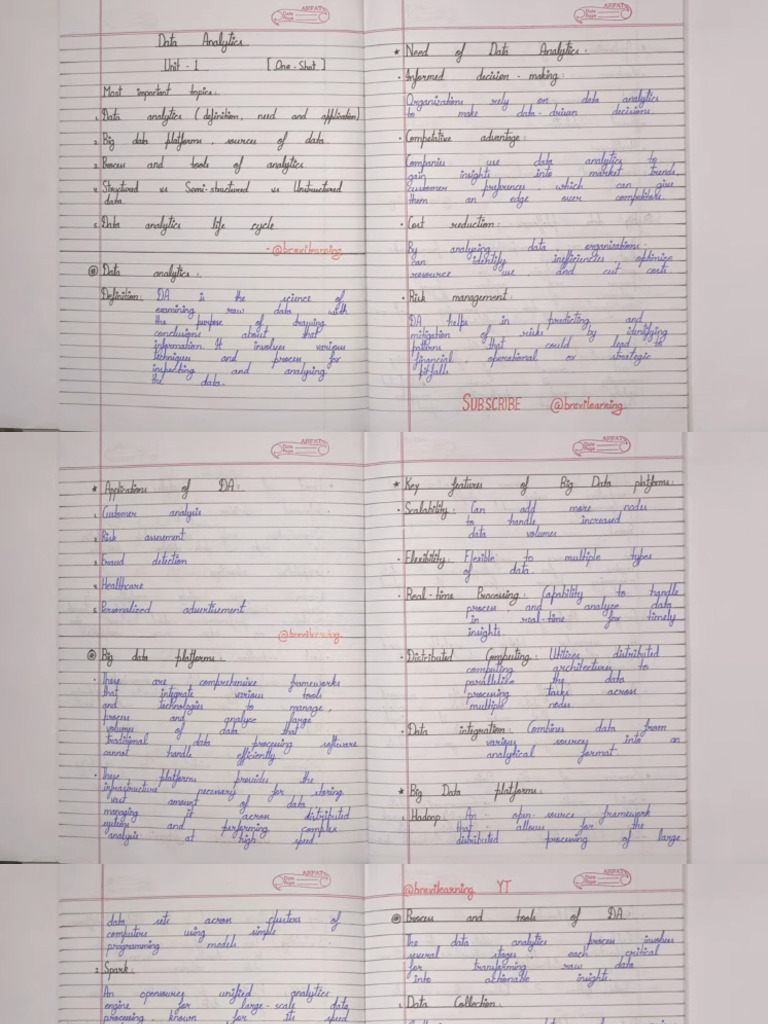 ARFAT
Date
Page
Data Analytics
Unit - 1 [One-Shot]
Most important topics:
1. Data analytics (definition, need and application)
2. Big data platforms, sources of data.
3. Process and tools of analytics
4. Structured vs Semi-structured vs Unstructured
data.
5. Data analytics life cycle
- @brevilearning
Data analytics:
Definition: DA is the science of
examining raw data with
the purpose of drawing
conclusions about that
information. It involves various
techniques and process for
inspecting and analysing
the data.
ARFAT
Date
Page
* Need of Data Analytics:
• Informed decision-making:
Organizations rely on data analytics
to make data-driven decisions.
• Competative advantage:
Companies use data analytics to
gain insights into market trends,
customer preferences, which can give
them an edge over competitors.
• Cost reduction:
By analyzing data, organisations
can identify inefficiencies, optimize
resource use, and cut costs.
• Risk management:
DA helps in predicting and
mitigation of risks by identifying
patterns that could lead to
financial, operational or strategic
pitfalls.
SUBSCRIBE @brevilearning
ARFAT
Date
Page
* Applications of DA:
1. Customer analysis
2. Risk assesment
3. Fraud detection
4. Healthcare
5. Personalized advertisement
@brevilearning
Big data platforms:
• These are comprehensive frameworks
that integrate various tools
and technologies to manage,
process and analyse large
volumes of data that
traditional data processing software
cannot handle efficiently.
• These platforms provides the
infrastructure necessary for storing
vast amount of data
managing it across distributed
systems and performing complex
analysis at high speed.
ARFAT
Date
Page
* Key features of Big Data platforms:
• Scalability: Can add more nodes
to handle increased
data volumes
• Flexibility: Flexible to multiple types
of data.
• Real-time Processing: Capability to handle
process and analyze data
in real-time for timely
insights.
• Distributed Computing: Utilizes distributed
computing architectures to
parallelize the data
processing tasks across
multiple nodes
• Data integration: Combines data from
various sources into an
analytical format.
* Big Data platforms:
1. Hadoop: An open-source framework
that allows for the
distributed processing of large
ARFAT
Date
Page
data sets across clusters of
computers using simple
programming models
2. Spark:
An opensource unified analytics
engine for large-scale data
processing, known for its speed
@brevilearning YT
ARFAT
Date
Page
Process and tools of DA:
The data analytics process involves
several stages, each critical
for transforming raw data
into actionable insights.
1. Data Collection: